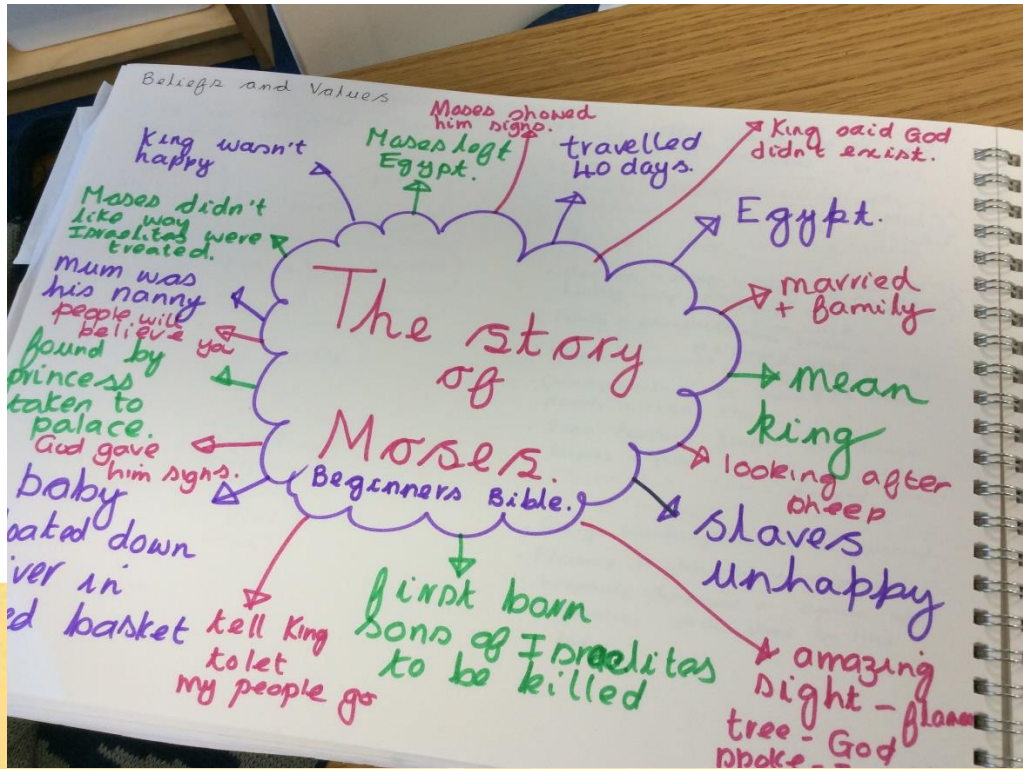 Beliefs and Values
King wasn't
happy
Moses left
Egypt.
Moses showed
him signs.
travelled
40 days.
King said God
didn't exist.
Egypt.
married
+ family
mean
king
looking after
sheep
slaves
unhappy
amazing
sight - flames
tree - God
spoke -
first born
sons of Israelites
to be killed
tell King
to let
my people go
baby
oated down
ver in
ed basket
God gave
him signs.
found by
princess
taken to
palace.
people will
believe you
mum was
his nanny
Moses didn't
like way
Israelites were
treated.
The story
of
Moses.
Beginners Bible.